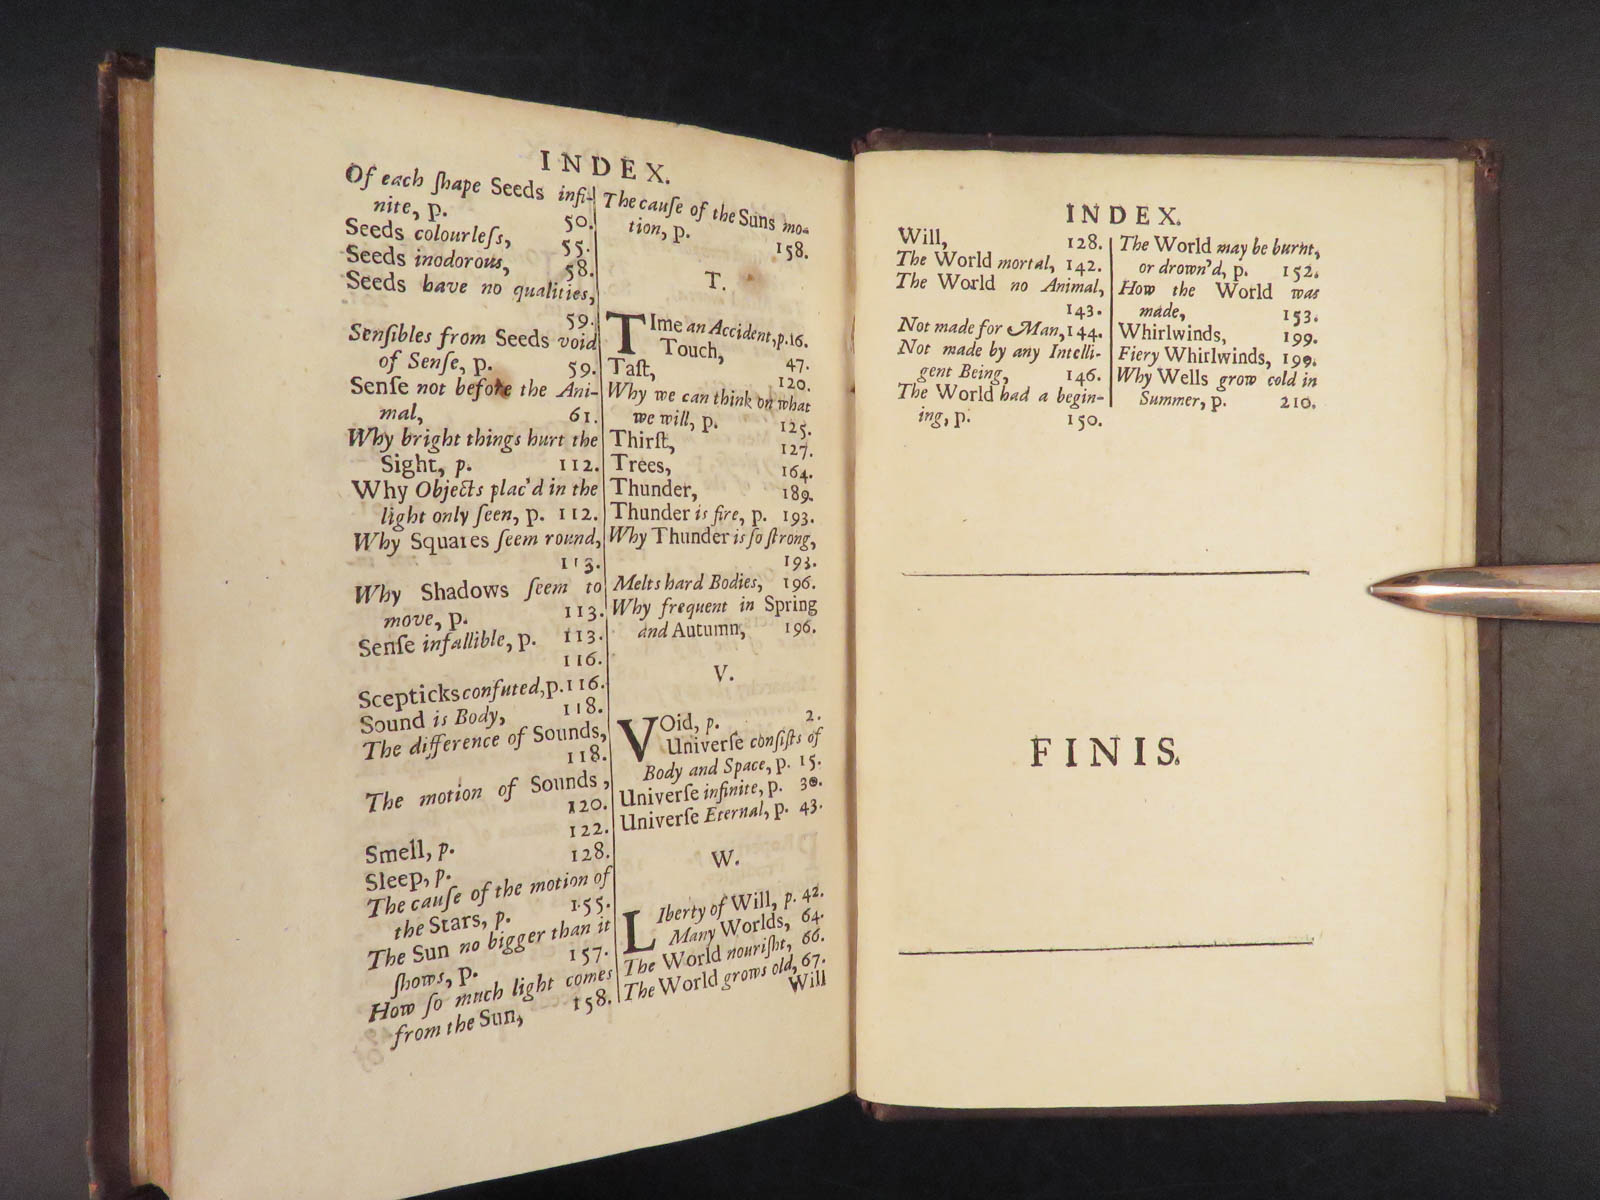 INDEX.
Of each ſhape Seeds infi-
nite, p. 50.
Seeds colourleſs, 55.
Seeds inodorous, 58.
Seeds have no qualities,
59.
Senſibles from Seeds void
of Senſe, p. 59.
Senſe not before the Ani-
mal, 61.
Why bright things hurt the
Sight, p. 112.
Why Objects plac'd in the
light only ſeen, p. 112.
Why Squares ſeem round,
113.
Why Shadows ſeem to
move, p. 113.
Senſe infallible, p. 113.
116.
Scepticks confuted, p. 116.
Sound is Body, 118.
The difference of Sounds,
118.
The motion of Sounds,
120.
Smell, p. 122.
Sleep, p. 128.
The cauſe of the motion of
the Stars, p. 155.
The Sun no bigger than it
ſhows, p. 157.
How ſo much light comes
from the Sun, 158.
The cauſe of the Suns mo-
tion, p. 158.
T.
TIme an Accident, p. 16.
Touch, 47.
Taſt, 120.
Why we can think on what
we will, p. 125.
Thirſt, 127.
Trees, 164.
Thunder, 189.
Thunder is fire, p. 193.
Why Thunder is ſo ſtrong,
193.
Melts hard Bodies, 196.
Why frequent in Spring
and Autumn, 196.
V.
VOid, p. 2.
Univerſe conſiſts of
Body and Space, p. 15.
Univerſe infinite, p. 30.
Univerſe Eternal, p. 43.
W.
LIberty of Will, p. 42.
Many Worlds, 64.
The World nouriſht, 66.
The World grows old, 67.
Will
INDEX.
Will, 128.
The World mortal, 142.
The World no Animal,
143.
Not made for Man, 144.
Not made by any Intelli-
gent Being, 146.
The World had a begin-
ing, p. 150.
The World may be burnt,
or drown'd, p. 152.
How the World was
made, 153.
Whirlwinds, 199.
Fiery Whirlwinds, 199.
Why Wells grow cold in
Summer, p. 210.
FINIS.